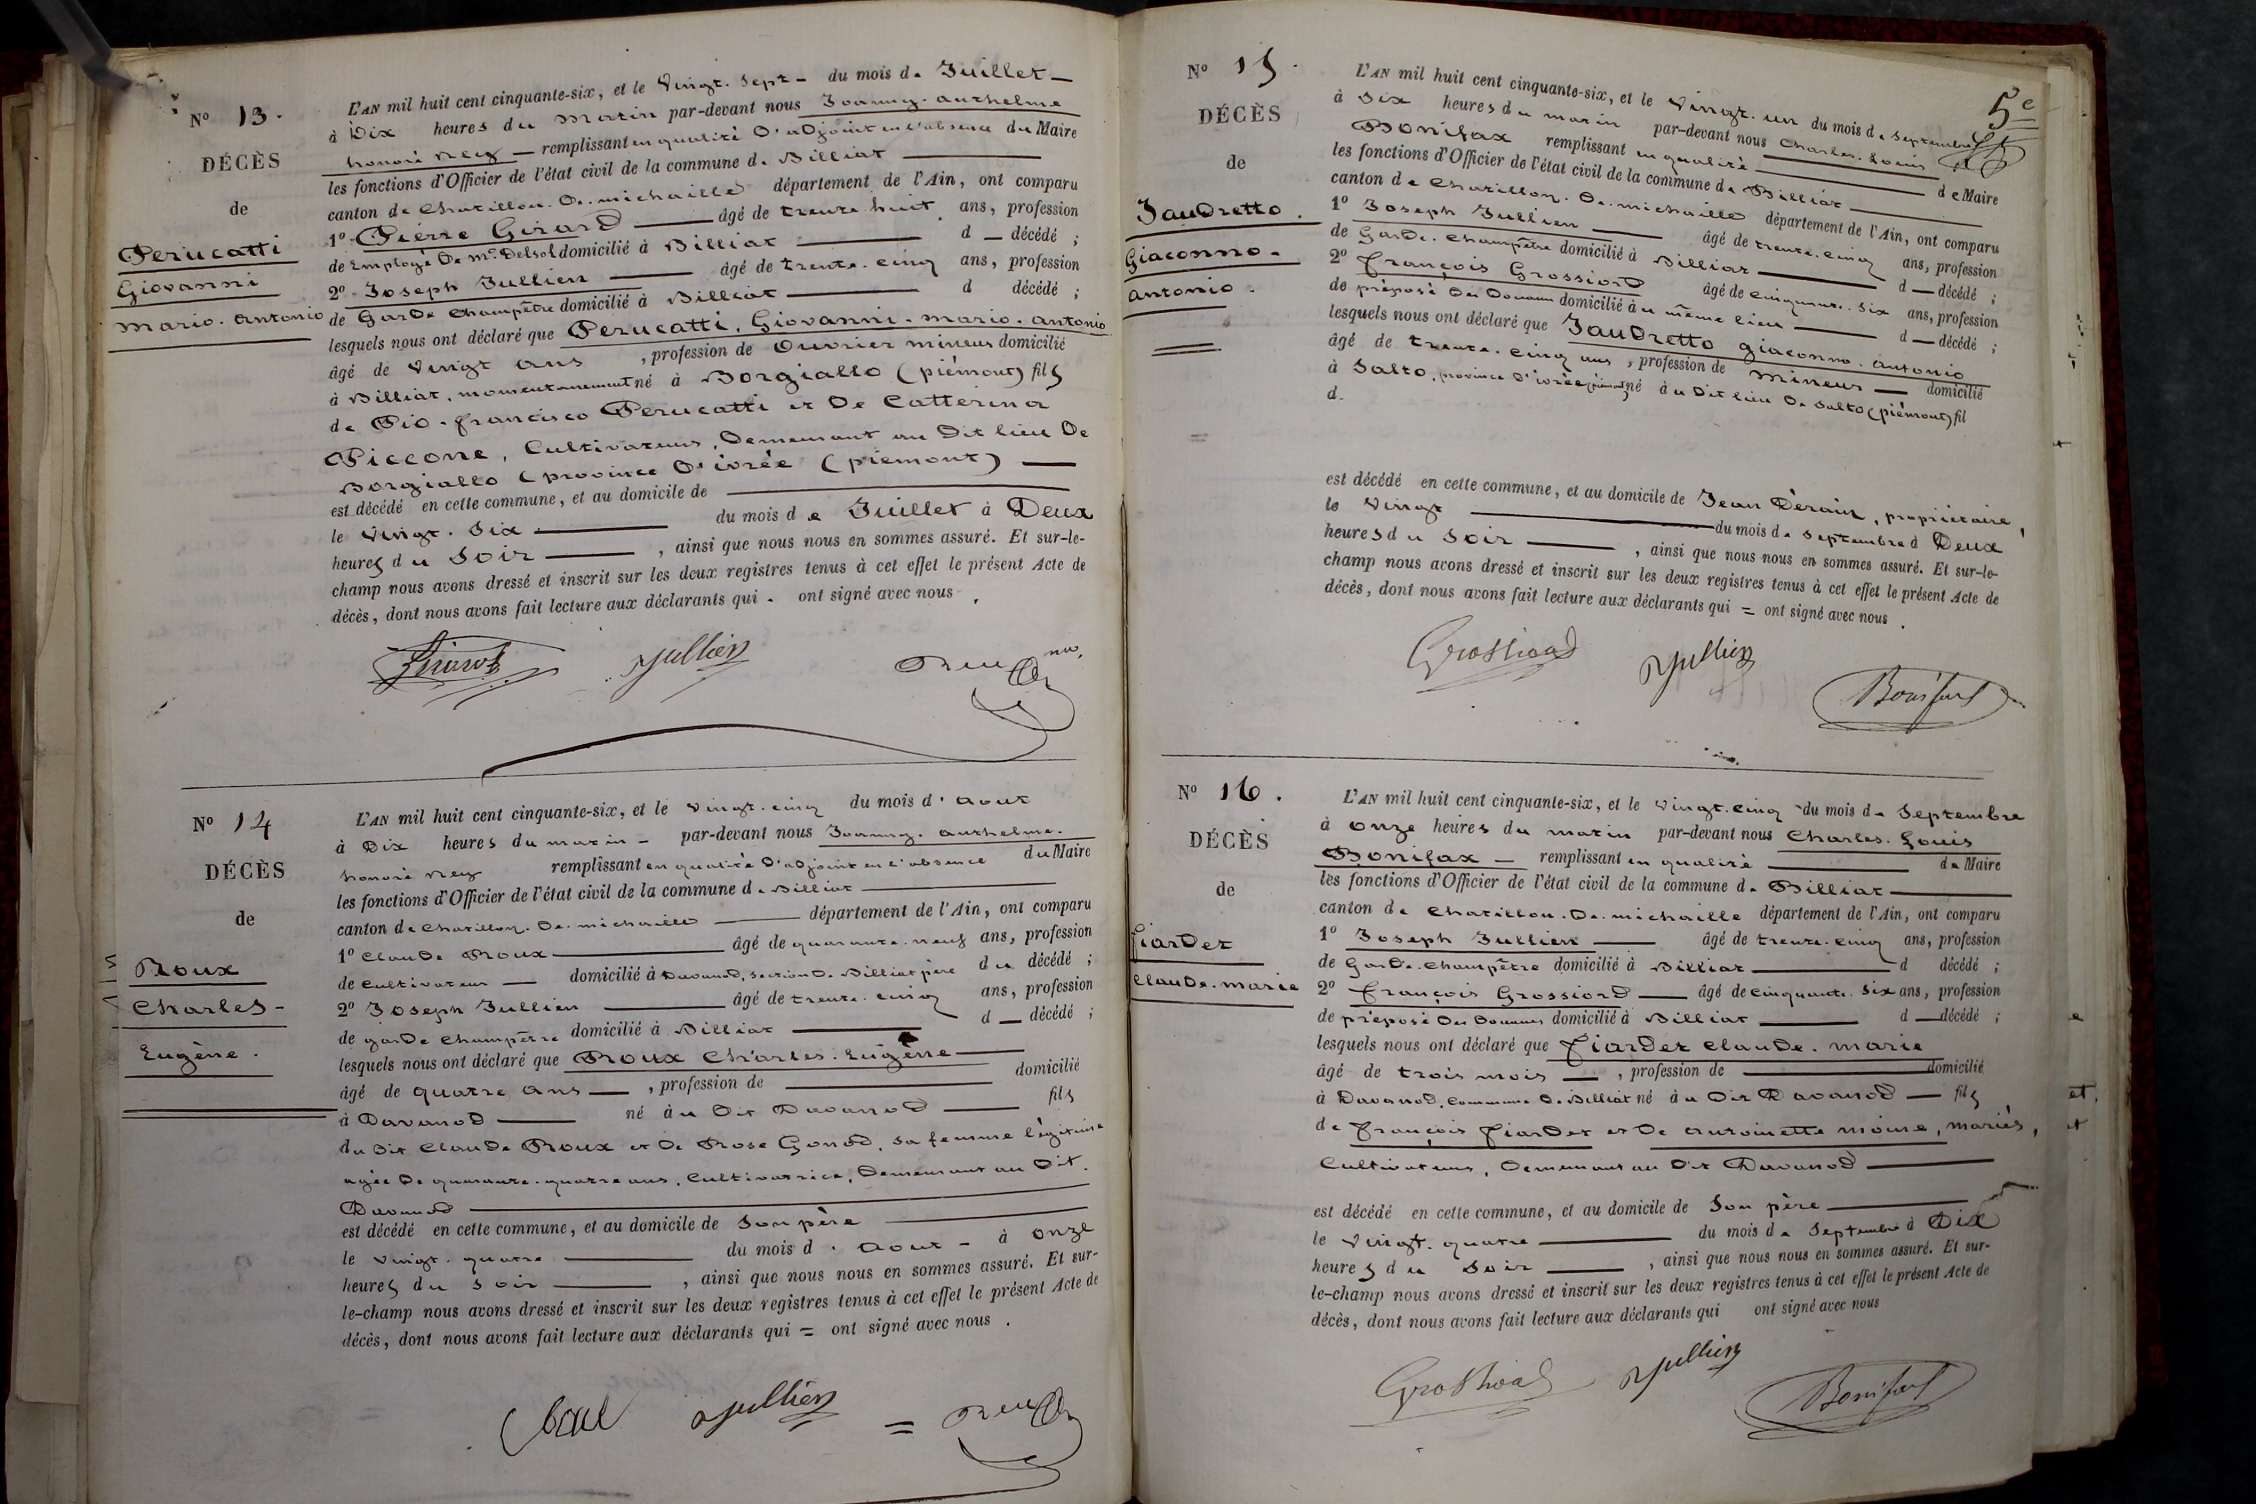 N° 13.
DÉCÈS
de
Perucatti
Giovanni
mario. antonio
L'AN mil huit cent cinquante-six, et le vingt. sept - du mois de Juillet -
à Dix heures du matin par-devant nous Joanny. anthelme
honoré Rey - remplissant en qualité d'adjoint en l'absence du Maire
les fonctions d'Officier de l'état civil de la commune de Billiat
canton de Chatillon. De. michaille département de l'Ain, ont comparu
1° Pierre Girard âgé de trente huit ans, profession
de Employé De Mr. Delsol domicilié à Billiat d décédé ;
2° Joseph Jullien âgé de trente. cinq ans, profession
de Garde Champêtre domicilié à Billiat d décédé ;
lesquels nous ont déclaré que Perucatti, Giovanni. mario. antonio
âgé de vingt ans, profession de ouvrier mineur domicilié
à Billiat, momentanement né à Borgiallo (piémont) fils
de Pio. francisco Perucatti et De Catterina
Piccone, Cultivateurs, Demeurant au Dit lieu De
Borgiallo (province D'ivrée (piémont)
est décédé en cette commune, et au domicile de
le vingt. six du mois de Juillet à Deux
heures du Soir, ainsi que nous nous en sommes assuré. Et sur-le-
champ nous avons dressé et inscrit sur les deux registres tenus à cet effet le présent Acte de
décès, dont nous avons fait lecture aux déclarants qui. ont signé avec nous.
Girard Jullien
N° 14
DÉCÈS
de
Roux
Charles-
Eugène.
L'AN mil huit cent cinquante-six, et le vingt. cinq du mois d'aout
à Dix heures du matin - par-devant nous Joanny. anthelme.
honoré Rey remplissant en qualité d'adjoint en l'absence du Maire
les fonctions d'Officier de l'état civil de la commune de Billiat
canton de Chatillon. De. michaille département de l'Ain, ont comparu
1° Claude Roux âgé de quarante. neuf ans, profession
de Cultivateur domicilié à Davanod, section De Billiat père du décédé ;
2° Joseph Jullien âgé de trente. cinq ans, profession
de garde champêtre domicilié à Billiat d décédé ;
lesquels nous ont déclaré que Roux Charles. Eugène
âgé de quatre ans, profession de domicilié
à Davanod né au Dit Davanod fils
du Dit Claude Roux et De Rose Gonod, sa femme légitime
agée De quarante. quatre ans, Cultivatrice, Demeurant au Dit.
Davanod
est décédé en cette commune, et au domicile de son père
le vingt. quatre du mois d'aout - à onze
heures du soir, ainsi que nous nous en sommes assuré. Et sur-
le-champ nous avons dressé et inscrit sur les deux registres tenus à cet effet le présent Acte de
décès, dont nous avons fait lecture aux déclarants qui = ont signé avec nous.
Jullien
5e
N° 15.
DÉCÈS
de
Jaudretto.
Giaconno-
antonio.
L'AN mil huit cent cinquante-six, et le vingt. un du mois de septembre
à Six heures du matin par-devant nous Charles. Louis
Bonifax remplissant en qualité de Maire
les fonctions d'Officier de l'état civil de la commune de Billiat
canton de Chatillon. De. michaille département de l'Ain, ont comparu
1° Joseph Jullien âgé de trente. cinq ans, profession
de Garde. champêtre domicilié à Billiat d décédé ;
2° François Grossiord âgé de cinquante. six ans, profession
de préposé Des Douanes domicilié au même lieu d décédé ;
lesquels nous ont déclaré que Jaudretto giaconno. antonio
âgé de trente. cinq ans, profession de mineur domicilié
à Salto, province D'ivrée (piémont) né au Dit lieu De Salto (piémont) fil
d.
est décédé en cette commune, et au domicile de Jean Dérain, propriétaire,
le vingt du mois de septembre à Deux
heures du Soir, ainsi que nous nous en sommes assuré. Et sur-le-
champ nous avons dressé et inscrit sur les deux registres tenus à cet effet le présent Acte de
décès, dont nous avons fait lecture aux déclarants qui = ont signé avec nous.
Grossiord Jullien Bonifax
N° 16.
DÉCÈS
de
fiardet
Claude. marie
L'AN mil huit cent cinquante-six, et le vingt. cinq du mois de Septembre
à onze heures du matin par-devant nous Charles. Louis
Bonifax - remplissant en qualité de Maire
les fonctions d'Officier de l'état civil de la commune de Billiat
canton de Chatillon. De. michaille département de l'Ain, ont comparu
1° Joseph Jullien âgé de trente. cinq ans, profession
de Garde. champêtre domicilié à Billiat d décédé ;
2° François Grossiord âgé de cinquante. six ans, profession
de préposé Des Douanes domicilié à Billiat d décédé ;
lesquels nous ont déclaré que fiardet Claude. marie
âgé de trois mois, profession de domicilié
à Davanod, commune De Billiat né au Dit Davanod fils
de François fiardet et De antoinette moine, mariés,
Cultivateurs, Demeurant au Dit Davanod
est décédé en cette commune, et au domicile de Son père
le vingt. quatre du mois de septembre à Dix
heures du Soir, ainsi que nous nous en sommes assuré. Et sur-
le-champ nous avons dressé et inscrit sur les deux registres tenus à cet effet le présent Acte de
décès, dont nous avons fait lecture aux déclarants qui ont signé avec nous
Grossiord Jullien Bonifax